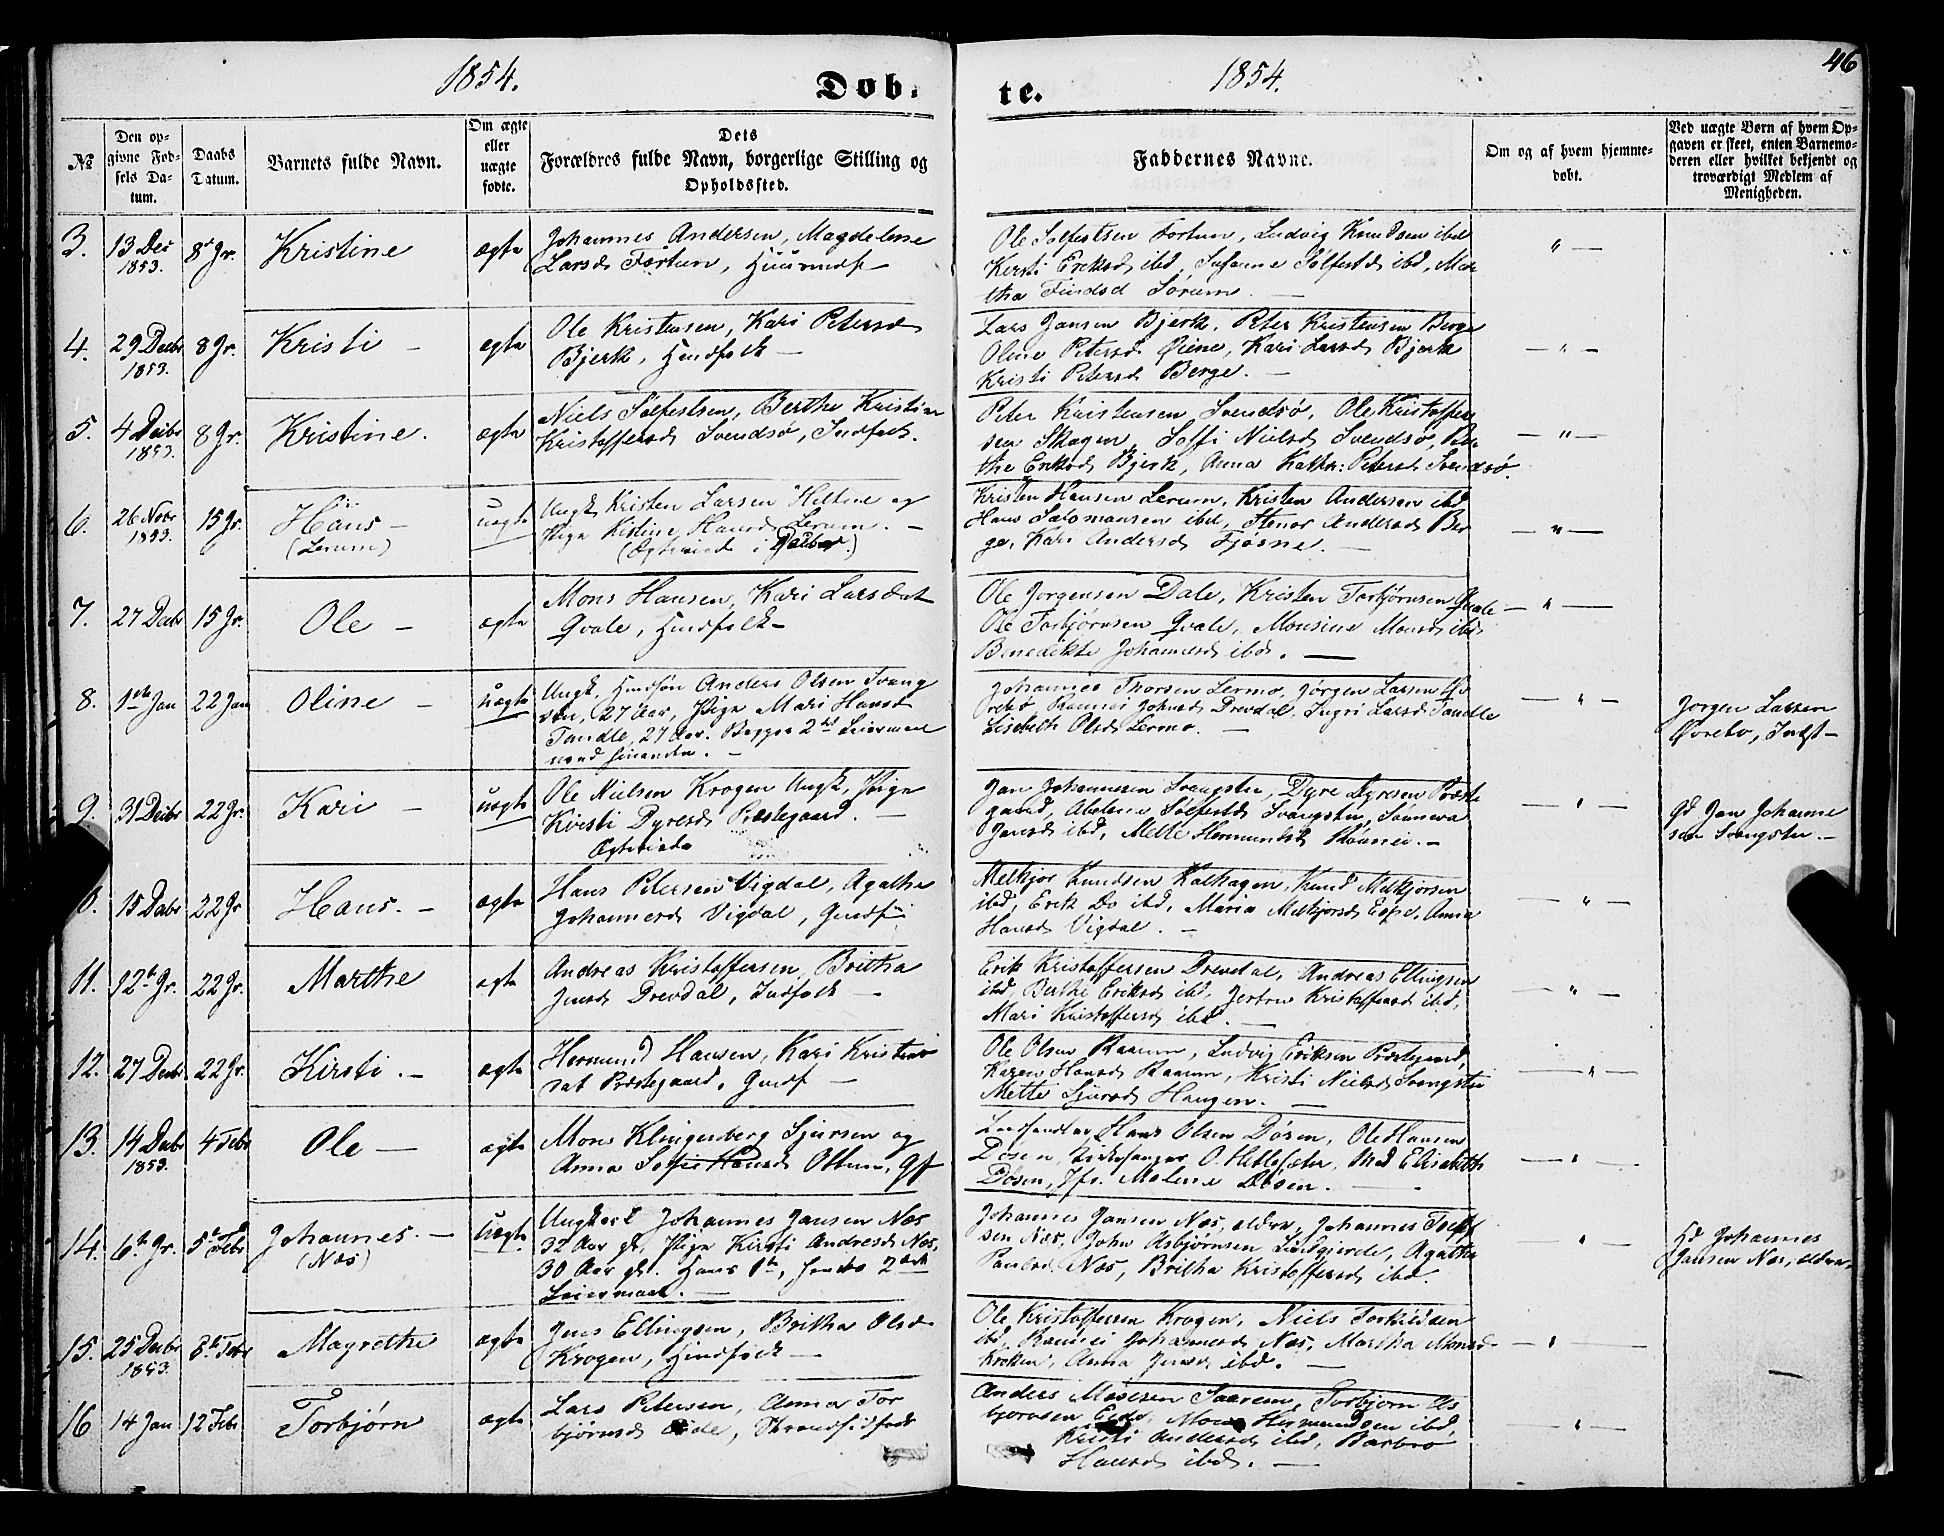 1854.
Døb-
te.
1854.
46
№
Den op-
givne Fød-
sels Da-
tum.
Daabs
Datum.
Barnets fulde Navn.
Om ægte
eller
uægte
fødte.
Dets
Forældres fulde Navn, borgerlige Stilling og
Opholdssted.
Faddernes Navne.
Om og af hvem hjemme-
døbt.
Ved uægte Børn af hvem Op-
gaven er skeet, enten Barnemo-
deren eller hvilket bekjendt og
troværdigt Medlem af
Menigheden.
3.
13 Dec
1853.
8 Jr.
Kristine
ægte
Johannes Andersen, Magdelene
Larsd Fortun,
Ole Solfestsen Fortun, Ludvig Knudsen ibd
Kirsti Eriksd ibd, Susanne Solfestd ibd, Mar
tha Findsd Sørum
4.
29 Decbr
1853.
8 Jr.
Kristi –
ægte
Ole Kristensen, Kari Petersd
Bjerk, Husfolk –
Lars Jansen Bjerk, Peter Kristensen Berge
Oline Petersd Øiene, Kari Larsd Bjerk
Kristi Petersd Berge. –
5.
4 Decbr
1853.
8 Jr.
Kristine.
ægte
Niels Solfestsen, Berthe Kristine
Kristoffersd Svendsø, Indfolk.
Peter Kristensen Svendsø, Ole Kristoffer
sen Skagen, Soffi Nielsd Svendsø, Ber
the Eriksd Bjerk, Anna Kathr: Petersd Svendsø.
6.
26 Nobr
1853.
15 Jr.
Hans –
(Lerum)
uægte
Ungk Kristen Larsen Heltne og
Pige Kistine Hansd Lerum. –
(Ægteviede i Decbr)
Kristen Hansen Lerum, Kristen Andersen ibd
Hans Salomonsen ibd, Stenor Andersd Ber
ge, Kari Andersd Fjøsne. –
7.
27 Decbr
15 Jr.
Ole –
ægte
Mons Hansen, Kari Larsdat
Qvale, Husfolk –
Ole Jørgensen Dale, Kristen Torbjørnsen Qvale
Ole Torbjørnsen Qvale, Monsine Monsd ibd
Benedikte Johannesd ibd. –
8.
1ste Jan
22 Jan
Oline –
uægte
Ungk, Husdsøn Anders Olsen Svang
stu, 27 Aar, Pige Mari Hansd
Tandle, 27 Aar. Begges 2det Leiermaal
med hinanden. –
Johannes Thorsen Lermo, Jørgen Larsen Øv
rebø, Rannei Johnsd Drevdal, Ingri Larsd Tandle
Lisebeth Olsd Lermo. –
Jørgen Larsen
Øvrebø, Indst –
9.
31 Decbr
22 Jr.
Kari –
uægte
Ole Nielsen Krogen Ungk, Pige
Kirsti Dyresd Præstegaard. –
Ægteviede
Jan Johannesen Svangstu, Dyre Dyresen Præste
gaard, Abelone Solfestd Svangstu, Sunneva
Jansd ibd, Mette Hermundsd Rønnei. –
Gd Jan Johanne
sen Svangstu –
15 Decbr
22 Jr
Hans. –
ægte
Hans Petersen Vigdal, Agathe
Johannesd Vigdal, Gaardf
Melkjor Knudsen Kalhagen, Knud Melkjorsen
ibd, Erik Do ibd, Maria Melkjorsd Espe, Anna
Hansd Vigdal. –
11.
12te Jr.
22 Jr.
Marthe
ægte
Andreas Kristoffersen, Britha
Jensd Drevdal, Indfolk –
Erik Kristoffersen Drevdal, Andreas Ellingsen
ibd, Berthe Eriksd ibd, Jertru Kristoffersd ibd,
Mari Kristoffersd ibd. –
12.
27 Decbr
22 Jr.
Kirsti. –
ægte
Hermund Hansen, Kari Kristens
dat Præstegaard, Gaardf –
Ole Olsen Raaum, Ludvig Eriksen Præstegaard,
Karen Hansd Raaum, Kristi Nielsd Svangstu
Mette Sjursd Haugen. –
13.
14 Decbr
1853.
4 Febr
Ole –
ægte
Mons Klingenberg Sjursen og
Anna Sofie Hansd Ottum, Gf
Landhandler Hans Olsen Døsen, Ole Hansen
Døsen, Kirkesanger O. Hetlesæter, Mad Elisabeth
Døsen, Jfr. Malene Døsen. –
14.
6te Jr.
5te Febr
Johannes. –
(Næs)
uægte
Ungkarl Johannes Jansen Næs
32 Aar gl, Pige Kirsti Andresd Næs,
30 Aar gl. Hans 1te, hendes 2det
Leiermaal. –
Johannes Jansen Næs, ældre, Johannes
sen Næs, John Asbjørnsen Lindgjerde, Agathe
Paulsd Næs, Britha Kristoffersd ibd.
Hd Johannes
Jansen Næs, ældre
15.
25 Decbr
1853.
8te Febr
Magrethe
ægte
Jens Ellingsen, Britha Olsd
Krogen, Husfolk –
Ole Kristoffersen Krogen, Niels Torkildsen
ibd, Rannei Johannesd Næs, Martha Monsd
Kroken, Anna Jensd ibd. –
16
14 Jan
12 Febr
Torbjørn
ægte
Lars Petersen, Anna Tor
bjørnsd Eide, Strandsidfolk
Anders Mosesen Saarem, Torbjørn As
bjørnsen Eide, Mons Hermundsen ibd,
Kristi Andersd ibd, Barbro
Hansd ibd. –